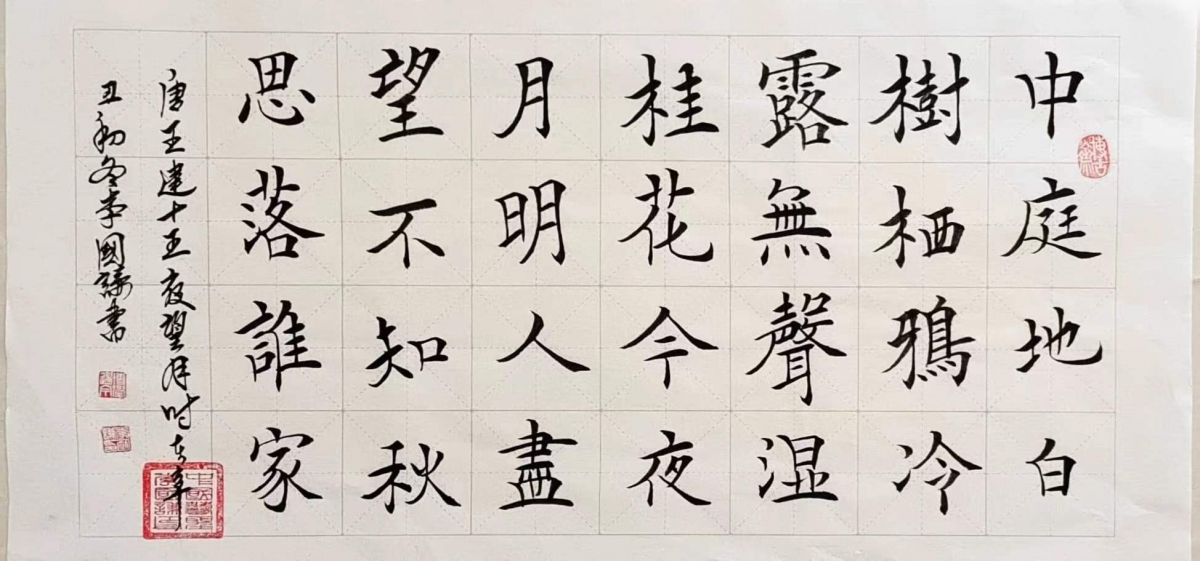 中庭地白
樹栖鴉冷
露無聲湿
桂花今夜
月明人盡
望不知秋
思落誰家
唐王建十五夜望月时在辛
丑初冬李國書